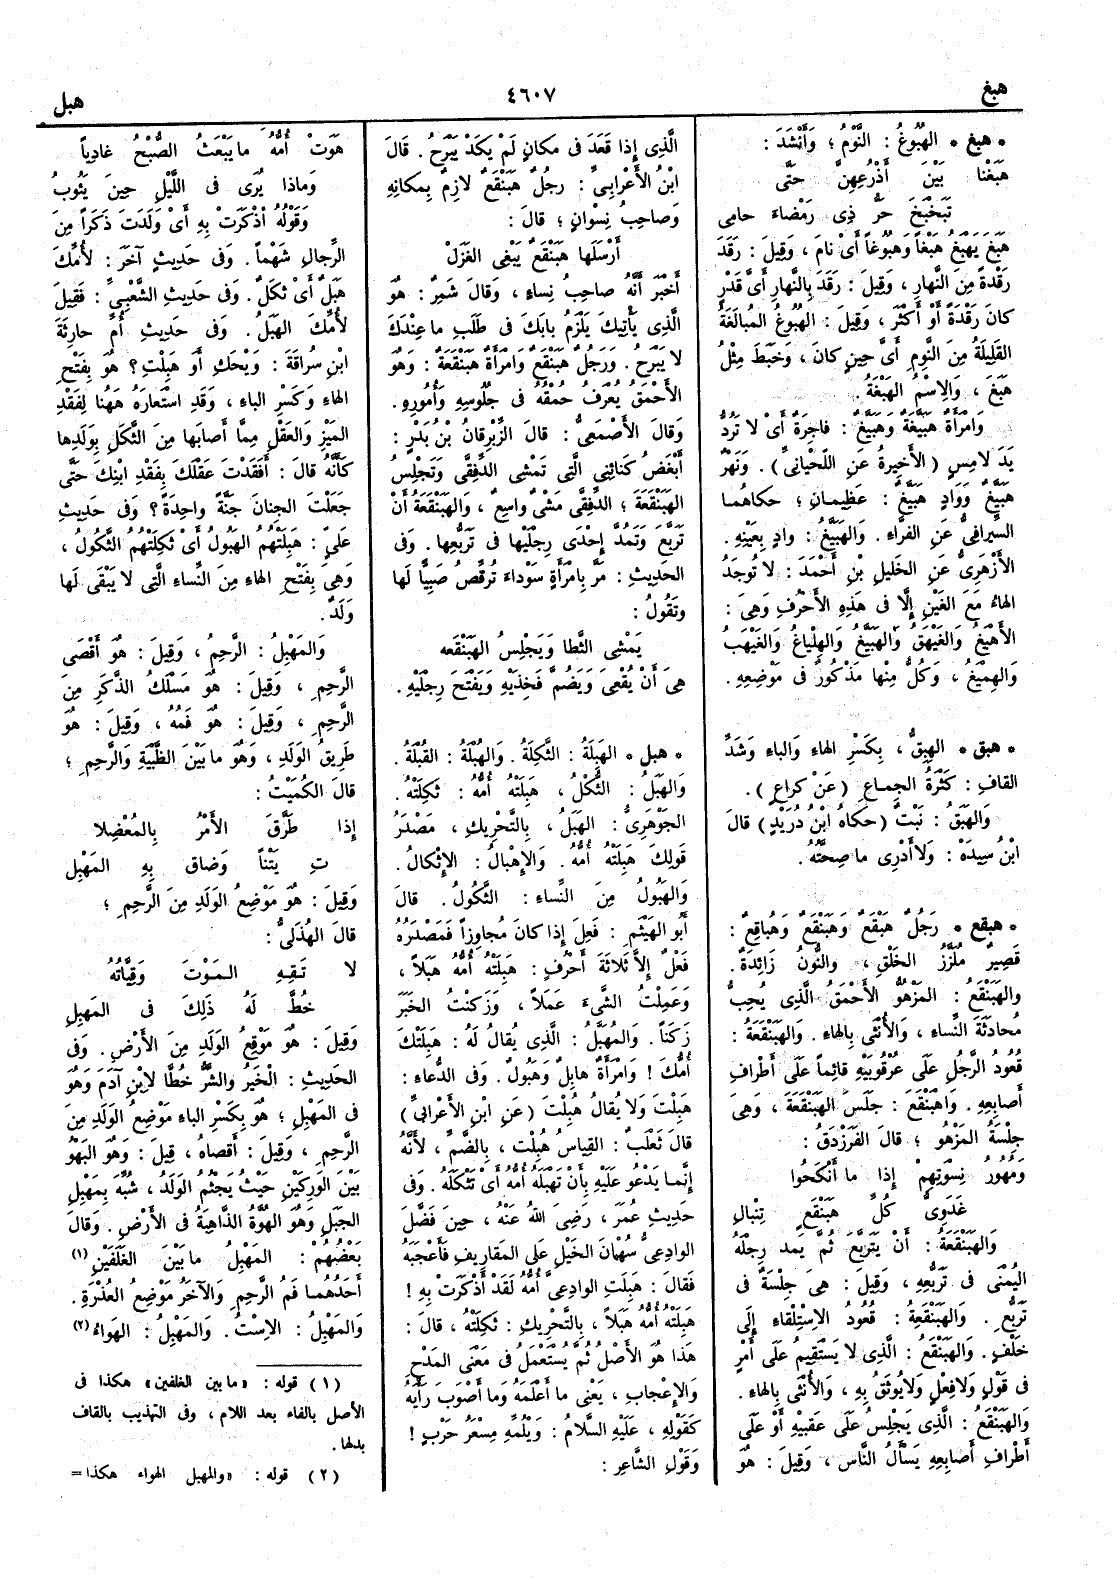 هبغ
٤٦٠٧
هبل
* هبغ * الهُبُوغُ : النَّوْمُ ؛ وَأَنْشَدَ :
هَبَغْنا بَيْنَ أَذْرُعِهِنَّ حَتَّى
تَبَخْبَخَ حَرُّ ذِى رَمْضاءَ حامِى
هَبَغَ يَهْبَغُ هَبْغاً وَهُبُوغاً أَىْ نامَ ، وَقِيلَ : رَقَدَ
رَقْدَةً مِنَ النَّهارِ ، وَقِيلَ : رَقَدَ بِالنَّهارِ أَىَّ قَدْرٍ
كانَ رَقْدَةً أَوْ أَكْثَرَ ، وَقِيلَ : الهُبُوغُ المُبالَغَةُ
القَلِيلَةُ مِنَ النَّوْمِ أَىَّ حِينٍ كانَ ، وَخَبَطَ مِثْلُ
هَبَغَ ، وَالِاسْمُ الهَبْغَةُ .
وَامْرَأَةٌ هَبَيَّغَةٌ وَهَبَيَّغٌ : فاجِرَةٌ أَىْ لا تَرُدُّ
يَدَ لامِسٍ (الأَخِيرَةُ عَنِ اللِّحْيانِىِّ) . وَنَهْرٌ
هَبَيَّغٌ وَوَادٍ هَبَيَّغٌ : عَظِيمانِ ؛ حَكاهُما
السِّيرافِىُّ عَنِ الفَرَّاءِ . وَالهَبَيَّغُ : وادٍ بِعَيْنِهِ .
الأَزْهَرِىُّ عَنِ الخَلِيلِ بْنِ أَحْمَدَ : لا تُوجَدُ
الهاءُ مَعَ الغَيْنِ إِلَّا فى هٰذِهِ الأَحْرُفِ وَهِىَ :
الأَهْيَغُ وَالغَيْهَقُ وَالهَبَيَّغُ وَالهِلْياغُ وَالغَيْهَبُ
وَالهِمْيَغُ ، وَكُلٌّ مِنْها مَذْكُورٌ فى مَوْضِعِهِ .
* هبق * الهِبِقُّ ، بِكَسْرِ الهاءِ وَالباءِ وَشَدِّ
القافِ : كَثْرَةُ الجِماعِ (عَنْ كراعٍ) .
وَالهَبَقُ : نَبْتٌ (حَكاهُ ابْنُ دُرَيْدٍ) قالَ
ابْنُ سِيدَهْ : وَلا أَدْرِى ما صِحَّتُهُ .
* هبقع * رَجُلٌ هَبْقَعٌ وَهَبَنْقَعٌ وَهُباقِعٌ :
قَصِيرٌ مُلَزَّزُ الخَلْقِ ، وَالنُّونُ زائِدَةٌ .
وَالهَبَنْقَعُ : المَزْهُوُّ الأَحْمَقُ الَّذِى يُحِبُّ
مُحادَثَةَ النِّساءِ ، وَالأُنْثَى بِالهاءِ . وَالهَبَنْقَعَةُ :
قُعُودُ الرَّجُلِ عَلَى عُرْقُوبَيْهِ قائِماً عَلَى أَطْرافِ
أَصابِعِهِ . وَاهْبَنْقَعَ : جَلَسَ الهَبَنْقَعَةَ ، وَهِىَ
جِلْسَةُ المَزْهُوِّ ؛ قالَ الفَرَزْدَقُ :
وَمُهُورُ نِسْوَتِهِمْ إِذا ما أَنْكَحُوا
غَدَوِىُّ كُلِّ هَبَنْقَعٍ تِنْبالِ
وَالهَبَنْقَعَةُ : أَنْ يَتَرَبَّعَ ثُمَّ يَمُدَّ رِجْلَهُ
اليُمْنَى فى تَرَبُّعِهِ ، وَقِيلَ : هِىَ جِلْسَةٌ فى
تَرَبُّعٍ . وَالهَبَنْقَعَةُ : قُعُودُ الِاسْتِلْقاءِ إِلَى
خَلْفٍ . وَالهَبَنْقَعُ : الَّذِى لا يَسْتَقِيمُ عَلَى أَمْرٍ
فى قَوْلٍ وَلا فِعْلٍ وَلا يُوثَقُ بِهِ ، وَالأُنْثَى بِالهاءِ .
وَالهَبَنْقَعُ : الَّذِى يَجْلِسُ عَلَى عَقِبَيْهِ أَوْ عَلَى
أَطْرافِ أَصابِعِهِ يَسْأَلُ النَّاسَ ، وَقِيلَ : هُوَ
الَّذِى إِذا قَعَدَ فى مَكانٍ لَمْ يَكَدْ يَبْرَحُ . قالَ
ابْنُ الأَعْرابِىِّ : رَجُلٌ هَبَنْقَعٌ لازِمٌ بِمَكانِهِ
وَصاحِبُ نِسْوانٍ ؛ قالَ :
أَرْسَلَها هَبَنْقَعٌ يَبْغِى الغَزَلْ
أَخْبَرَ أَنَّهُ صاحِبُ نِساءٍ ، وَقالَ شَمِرٌ : هُوَ
الَّذِى يَأْتِيكَ يَلْزَمُ بابَكَ فى طَلَبِ ما عِنْدَكَ
لا يَبْرَحُ . وَرَجُلٌ هَبَنْقَعٌ وَامْرَأَةٌ هَبَنْقَعَةٌ : وَهُوَ
الأَحْمَقُ يُعْرَفُ حُمْقُهُ فى جُلُوسِهِ وَأُمُورِهِ .
وَقالَ الأَصْمَعِىُّ : قالَ الزِّبْرِقانُ بْنُ بَدْرٍ :
أَبْغَضُ كَنائِنِى الَّتِى تَمْشِى الدِّفِقَّى وَتَجْلِسُ
الهَبَنْقَعَةَ ؛ الدِّفِقَّى مَشْىٌ واسِعٌ ، وَالهَبَنْقَعَةُ أَنْ
تَرَبَّعَ وَتَمُدَّ إِحْدَى رِجْلَيْها فى تَرَبُّعِها . وَفى
الحَدِيثِ : مَرَّ بِامْرَأَةٍ سَوْداءَ تُرَقِّصُ صَبِيًّا لَها
وَتَقُولُ :
يَمْشِى الثَّطا وَيَجْلِسُ الهَبَنْقَعَه
هِىَ أَنْ يُقْعِىَ وَيَضُمَّ فَخِذَيْهِ وَيَفْتَحَ رِجْلَيْهِ .
* هبل * الهَبِلَةُ : الثَّكِلَةُ . وَالهُبْلَةُ : القُبْلَةُ .
وَالهَبَلُ : الثُّكْلُ ، هَبِلَتْهُ أُمُّهُ : ثَكِلَتْهُ .
الجَوْهَرِىُّ : الهَبَلُ ، بِالتَّحْرِيكِ ، مَصْدَرُ
قَوْلِكَ هَبِلَتْهُ أُمُّهُ . وَالإِهْبالُ : الإِثْكالُ .
وَالهَبُولُ مِنَ النِّساءِ : الثَّكُولُ . قالَ
أَبُو الهَيْثَمِ : فَعِلَ إِذا كانَ مُجاوِزاً فَمَصْدَرُهُ
فَعْلٌ إِلَّا ثَلاثَةَ أَحْرُفٍ : هَبِلَتْهُ أُمُّهُ هَبَلاً ،
وَعَمِلْتُ الشَّىْءَ عَمَلاً ، وَزَكِنْتُ الخَبَرَ
زَكَناً . وَالمُهَبَّلُ : الَّذِى يُقالُ لَهُ : هَبِلَتْكَ
أُمُّكَ ! وَامْرَأَةٌ هابِلٌ وَهَبُولٌ . وَفى الدُّعاءِ :
هَبِلْتَ وَلا يُقالُ هُبِلْتَ (عَنِ ابْنِ الأَعْرابِىِّ)
قالَ ثَعْلَبٌ : القِياسُ هُبِلْتَ ، بِالضَّمِّ ، لأَنَّهُ
إِنَّما يَدْعُو عَلَيْهِ بِأَنْ تَهْبَلَهُ أُمُّهُ أَىْ تَثْكَلَهُ . وَفى
حَدِيثِ عُمَرَ ، رَضِىَ اللهُ عَنْهُ ، حِينَ فَضَّلَ
الوادِعِىُّ سُهْمانَ الخَيْلِ عَلَى المَقارِيفِ فَأَعْجَبَهُ
فَقالَ : هَبِلَتِ الوادِعِىَّ أُمُّهُ لَقَدْ أَذْكَرَتْ بِهِ !
هَبِلَتْهُ أُمُّهُ هَبَلاً ، بِالتَّحْرِيكِ : ثَكِلَتْهُ ، قالَ :
هَذا هُوَ الأَصْلُ ثُمَّ يُسْتَعْمَلُ فى مَعْنَى المَدْحِ
وَالإِعْجابِ ، يَعْنِى ما أَعْلَمَهُ وَما أَصْوَبَ رَأْيَهُ
كَقَوْلِهِ ، عَلَيْهِ السَّلامُ : وَيْلُمِّهِ مِسْعَرُ حَرْبٍ !
وَقَوْلِ الشَّاعِرِ :
هَوَتْ أُمُّهُ ما يَبْعَثُ الصُّبْحُ غادِياً
وَماذا يُرَى فى اللَّيْلِ حِينَ يَثُوبُ
وَقَوْلُهُ أَذْكَرَتْ بِهِ أَىْ وَلَدَتْ ذَكَراً مِنَ
الرِّجالِ شَهْماً . وَفى حَدِيثٍ آخَرَ : لأُمِّكَ
هَبَلٌ أَىْ ثُكْلٌ . وَفى حَدِيثِ الشَّعْبِىِّ : فَقِيلَ
لأُمِّكَ الهَبَلُ . وَفى حَدِيثِ أُمِّ حارِثَةَ
ابْنِ سُراقَةَ : وَيْحَكِ أَوَ هَبِلْتِ؟ هُوَ بِفَتْحِ
الهاءِ وَكَسْرِ الباءِ ، وَقَدِ اسْتَعارَهُ هٰهُنا لِفَقْدِ
المَيْزِ وَالعَقْلِ مِمَّا أَصابَها مِنَ الثُّكْلِ بِوَلَدِها
كَأَنَّهُ قالَ : أَفَقَدْتِ عَقْلَكِ بِفَقْدِ ابْنِكِ حَتَّى
جَعَلْتِ الجِنانَ جَنَّةً واحِدَةً؟ وَفى حَدِيثِ
عَلِىٍّ : هَبِلَتْهُمُ الهَبُولُ أَىْ ثَكِلَتْهُمُ الثَّكُولُ ،
وَهِىَ بِفَتْحِ الهاءِ مِنَ النِّساءِ الَّتِى لا يَبْقَى لَها
وَلَدٌ .
وَالمَهْبِلُ : الرَّحِمُ ، وَقِيلَ : هُوَ أَقْصَى
الرَّحِمِ ، وَقِيلَ : هُوَ مَسْلَكُ الذَّكَرِ مِنَ
الرَّحِمِ ، وَقِيلَ : هُوَ فَمُهُ ، وَقِيلَ : هُوَ
طَرِيقُ الوَلَدِ ، وَهُوَ ما بَيْنَ الظَّبْيَةِ وَالرَّحِمِ ؛
قالَ الكُمَيْتُ :
إِذا طَرَّقَ الأَمْرُ بِالمُعْضِلا
تِ يَتْناً وَضاقَ بِهِ المَهْبِلُ
وَقِيلَ : هُوَ مَوْضِعُ الوَلَدِ مِنَ الرَّحِمِ ؛
قالَ الهُذَلِىُّ :
لا تَقِهِ المَوْتَ وَقِيَّاتُهُ
خُطَّ لَهُ ذٰلِكَ فى المَهْبِلِ
وَقِيلَ : هُوَ مَوْقِعُ الوَلَدِ مِنَ الأَرْضِ . وَفى
الحَدِيثِ : الخَيْرُ وَالشَّرُّ خُطَّا لاِبْنِ آدَمَ وَهُوَ
فى المَهْبِلِ ؛ هُوَ بِكَسْرِ الباءِ مَوْضِعُ الوَلَدِ مِنَ
الرَّحِمِ ، وَقِيلَ : أَقْصاهُ ، قِيلَ : وَهُوَ البَهْوُ
بَيْنَ الوَرِكَيْنِ حَيْثُ يَجْثُمُ الوَلَدُ ، شُبِّهَ بِمَهْبِلِ
الجَبَلِ وَهُوَ الهُوَّةُ الذَّاهِبَةُ فى الأَرْضِ . وَقالَ
بَعْضُهُمْ : المَهْبِلُ ما بَيْنَ الغَلَفَيْنِ (١)
أَحَدُهُما فَمُ الرَّحِمِ وَالآخَرُ مَوْضِعُ العُذْرَةِ .
وَالمَهْبِلُ : الاِسْتُ . وَالمَهْبِلُ : الهَواءُ (٢)
(١) قوله : «ما بين الغلفين» هكذا فى
الأصل بالفاء بعد اللام ، وفى التهذيب بالقاف
بدلها .
(٢) قوله : «والمهبل الهواء هكذا=